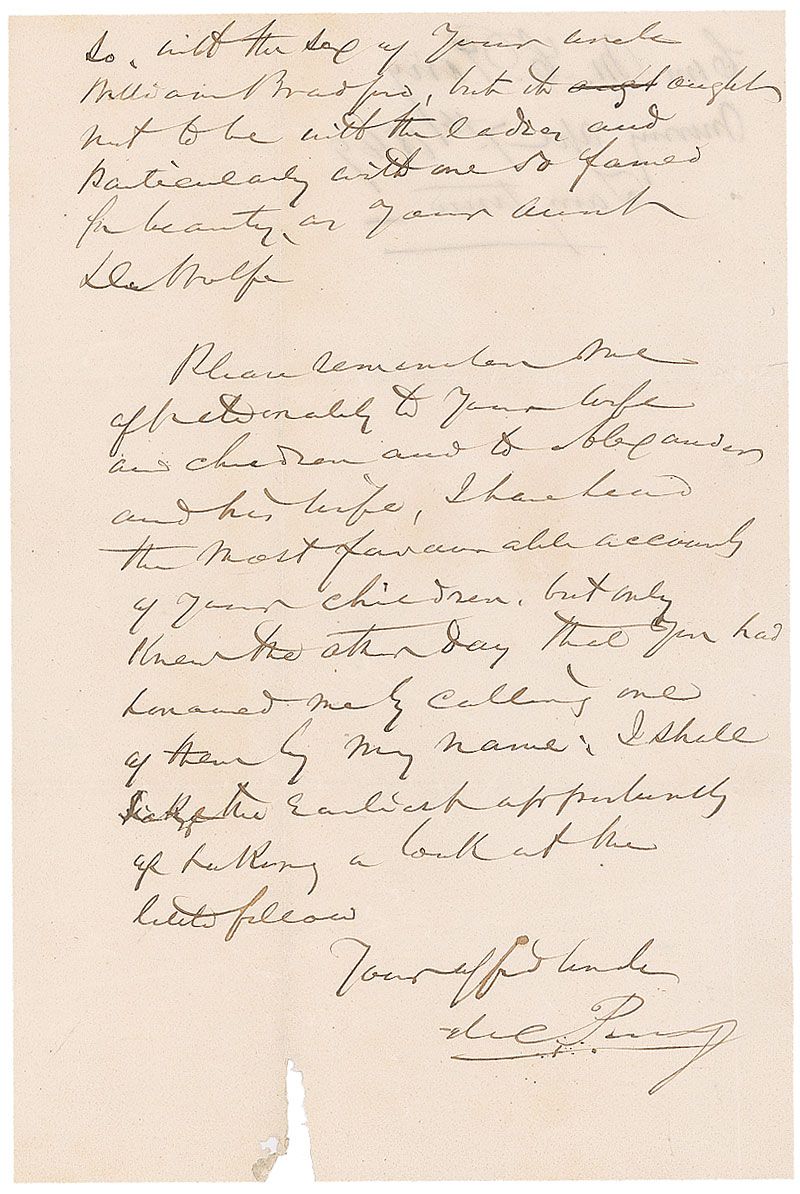 so, with the sex of your uncle
William Bradford, but it ought ought
not to be with the ladies and
particularly with one so famed
for beauty, as your aunt
De Wolfe
Please remember me
affectionately to your wife
and children and to Alexander
and his wife, I have heard
the most favourable accounts
of your children, but only
knew the other day that you had
honoured me by calling one
of them by my name; I shall
take the earliest opportunity
of taking a look at the
little fellow
Your affd uncle
M C Perry